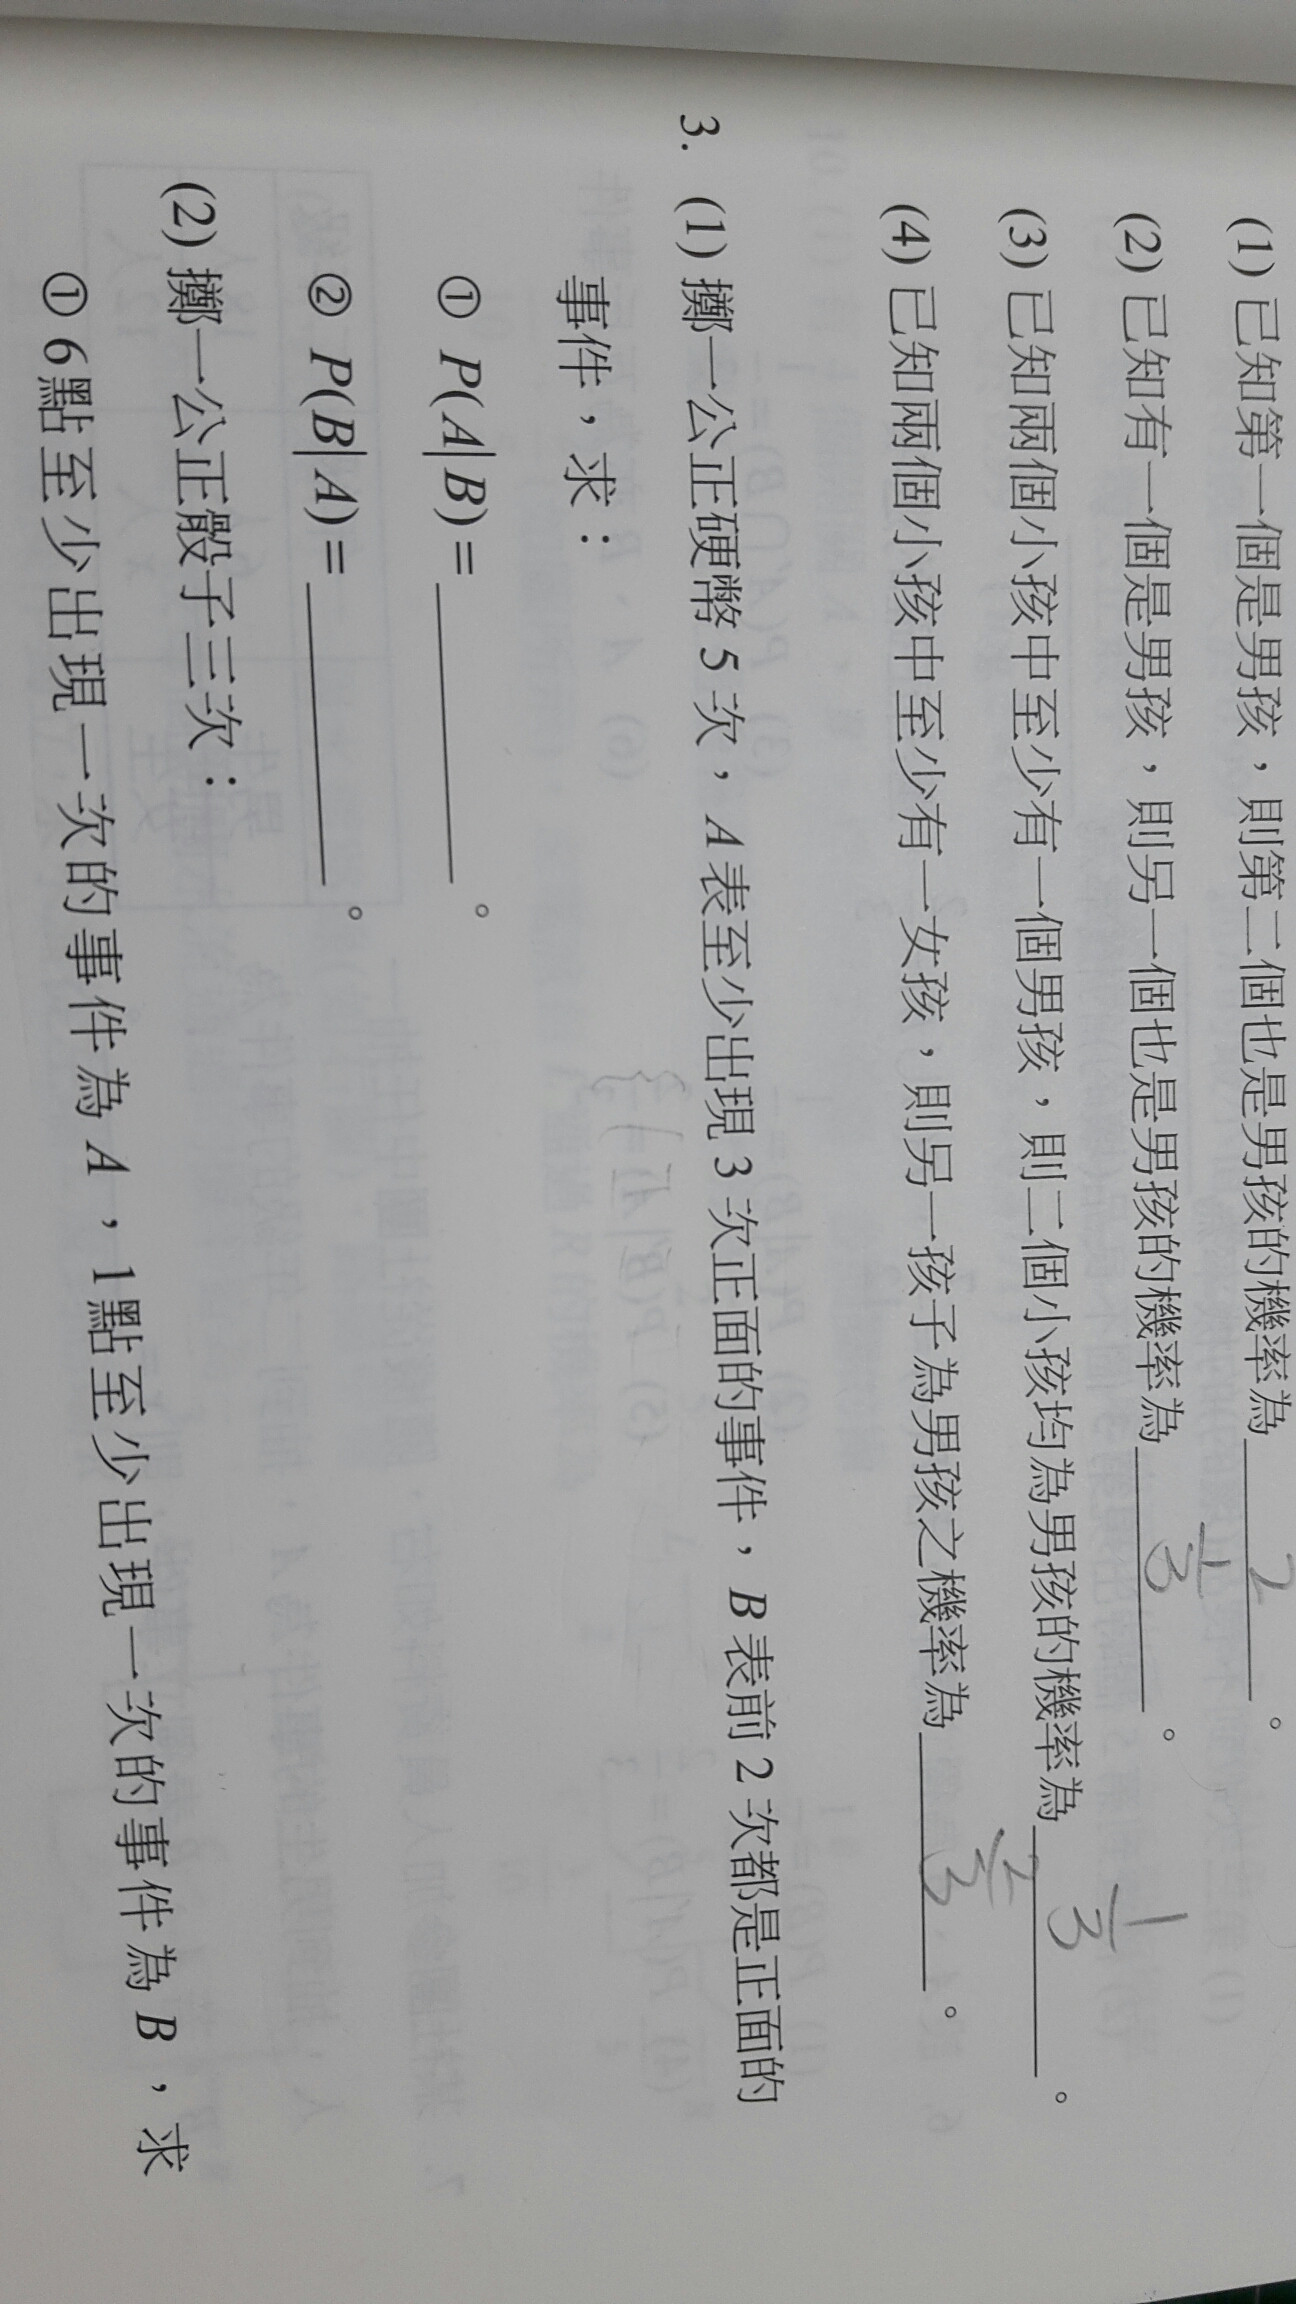 (1) 已知第一個是男孩，則第二個也是男孩的機率為 2 。
(2) 已知有一個是男孩，則另一個也是男孩的機率為 1/3 。
(3) 已知兩個小孩中至少有一個男孩，則二個小孩均為男孩的機率為 1/3 。
(4) 已知兩個小孩中至少有一女孩，則另一孩子為男孩之機率為 2/3 。
3. (1) 擲一公正硬幣 5 次，A 表至少出現 3 次正面的事件，B 表前 2 次都是正面的
事件，求：
① P(A|B)= 。
② P(B|A)= 。
(2) 擲一公正骰子三次：
① 6 點至少出現一次的事件為 A，1 點至少出現一次的事件為 B，求